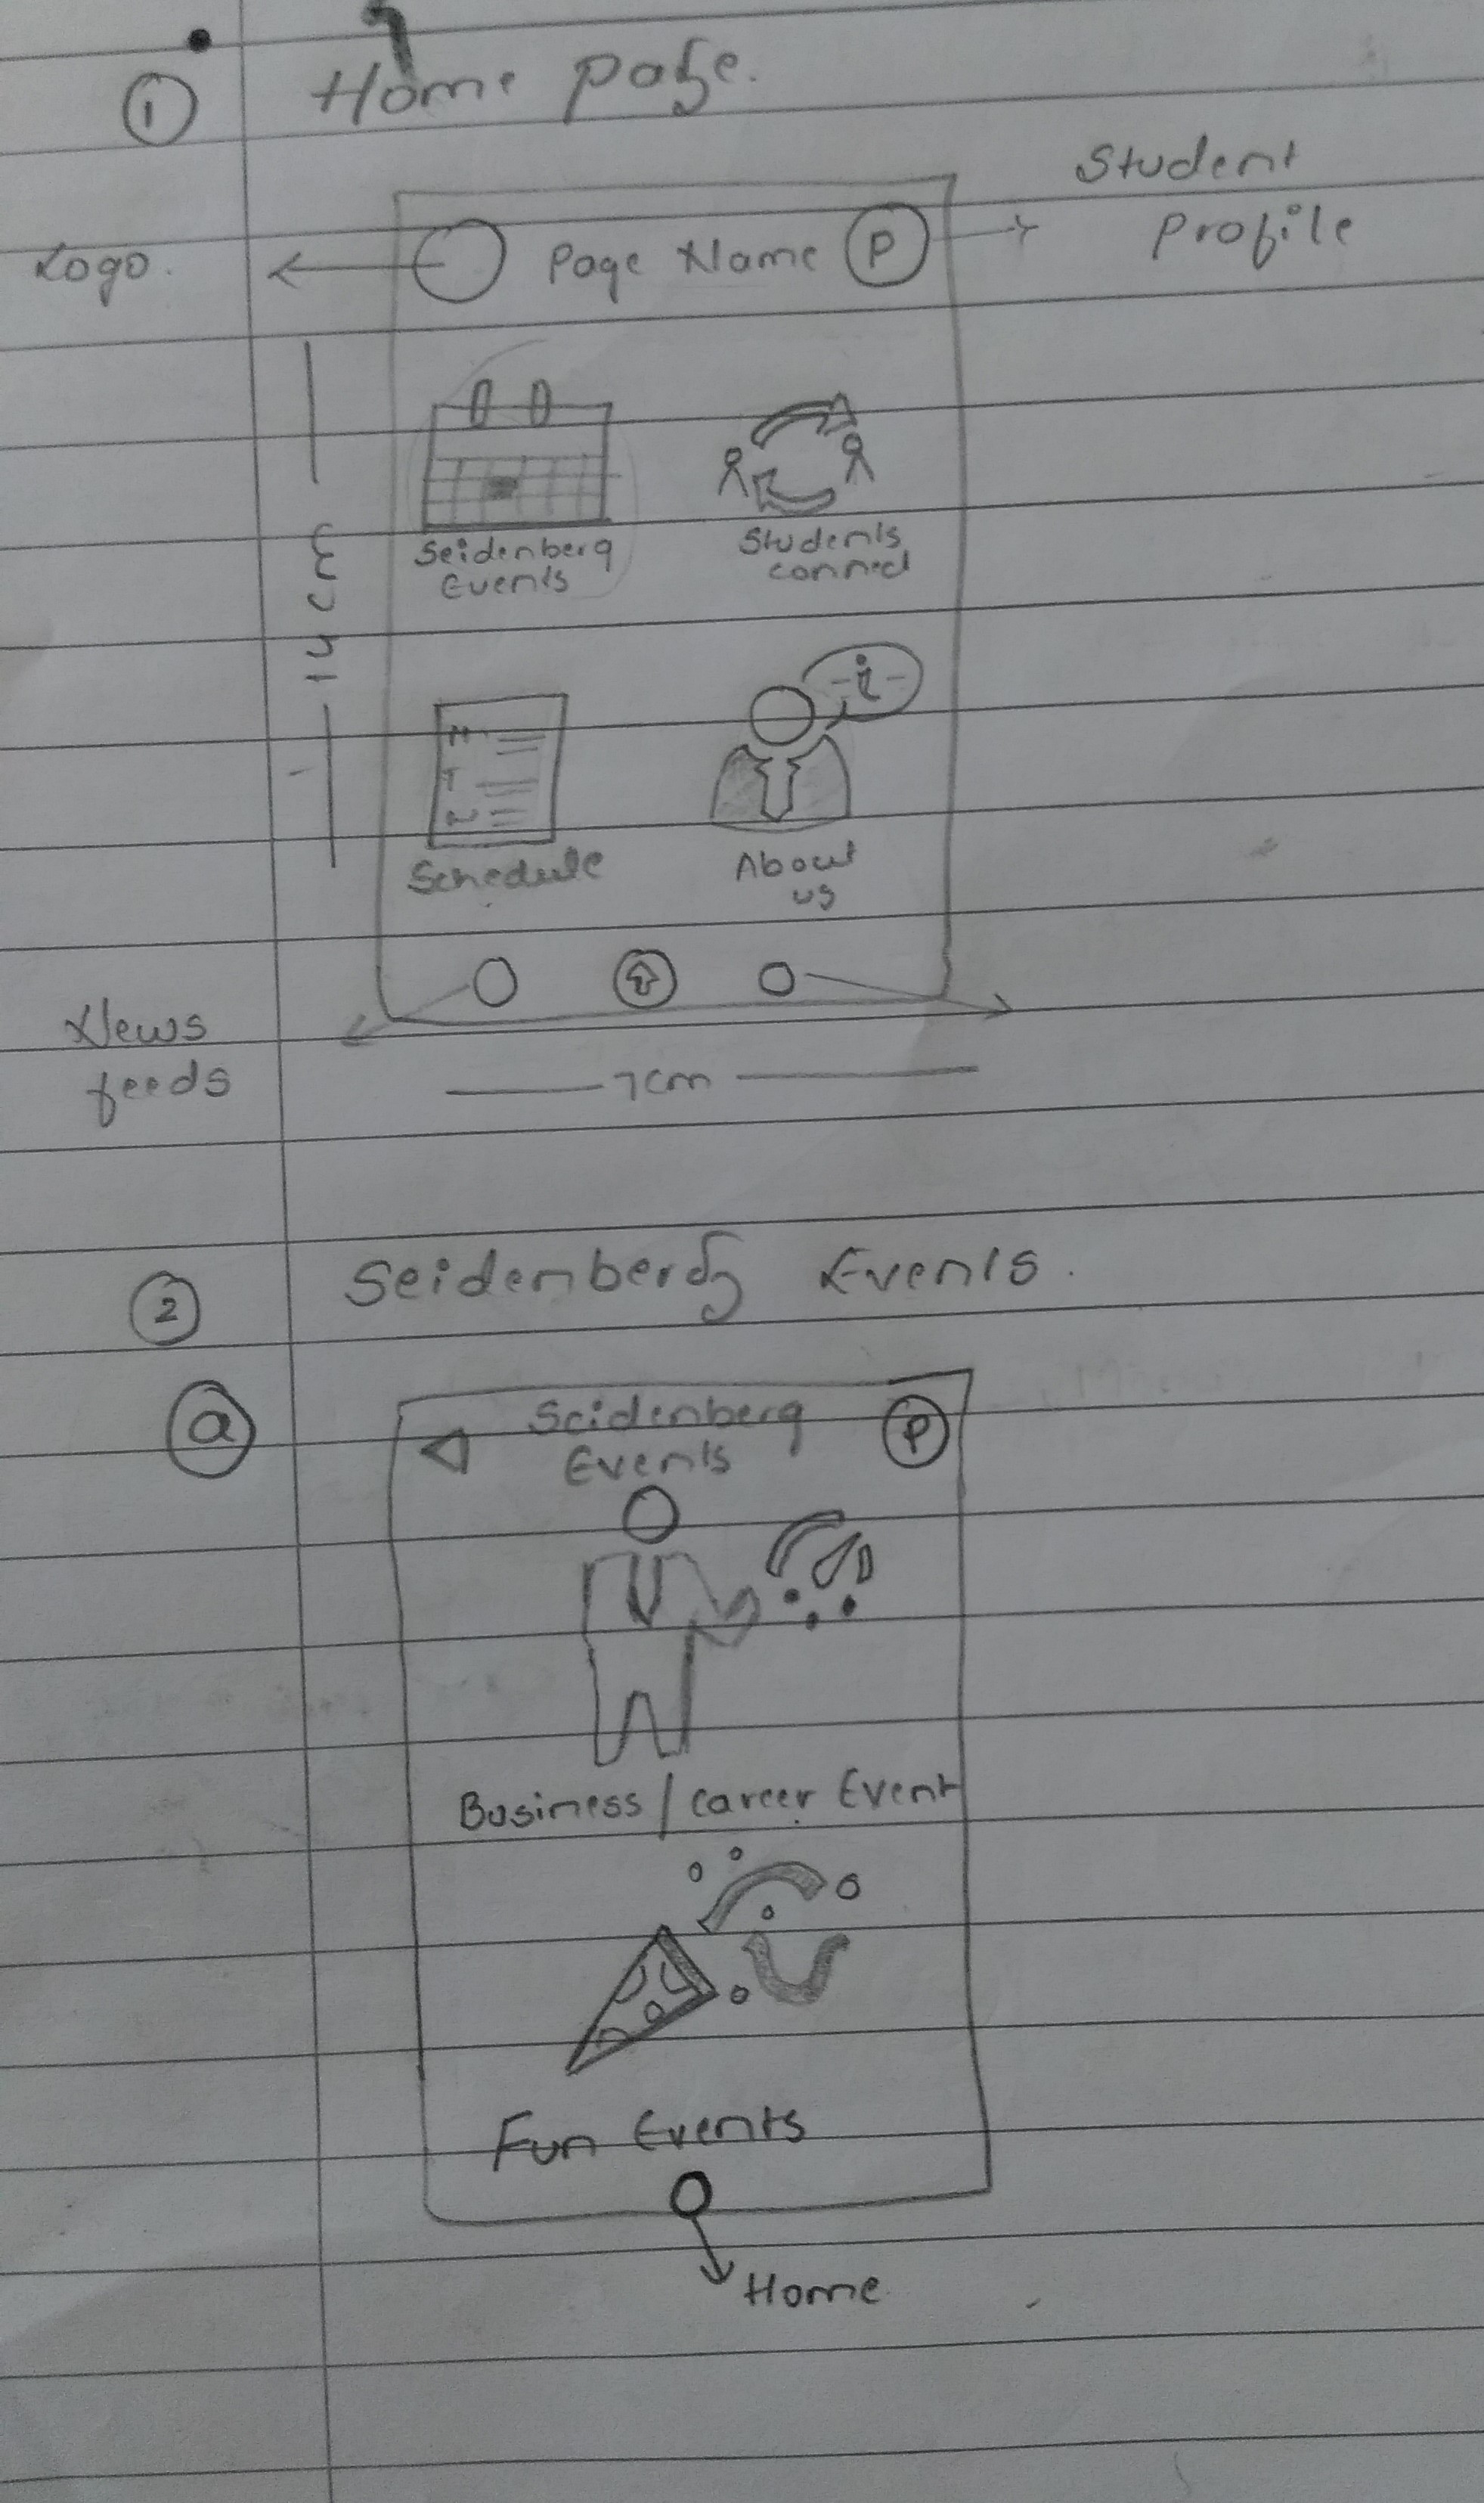 1 Home page.
Student
Profile
Logo.
Page Name P
Seidenberg
Events
Students
connect
14 cm
i
Schedule
About
us
News
feeds
7cm
2 Seidenberg Events.
a
Seidenberg
Events
P
Business / career Event
Fun Events
Home